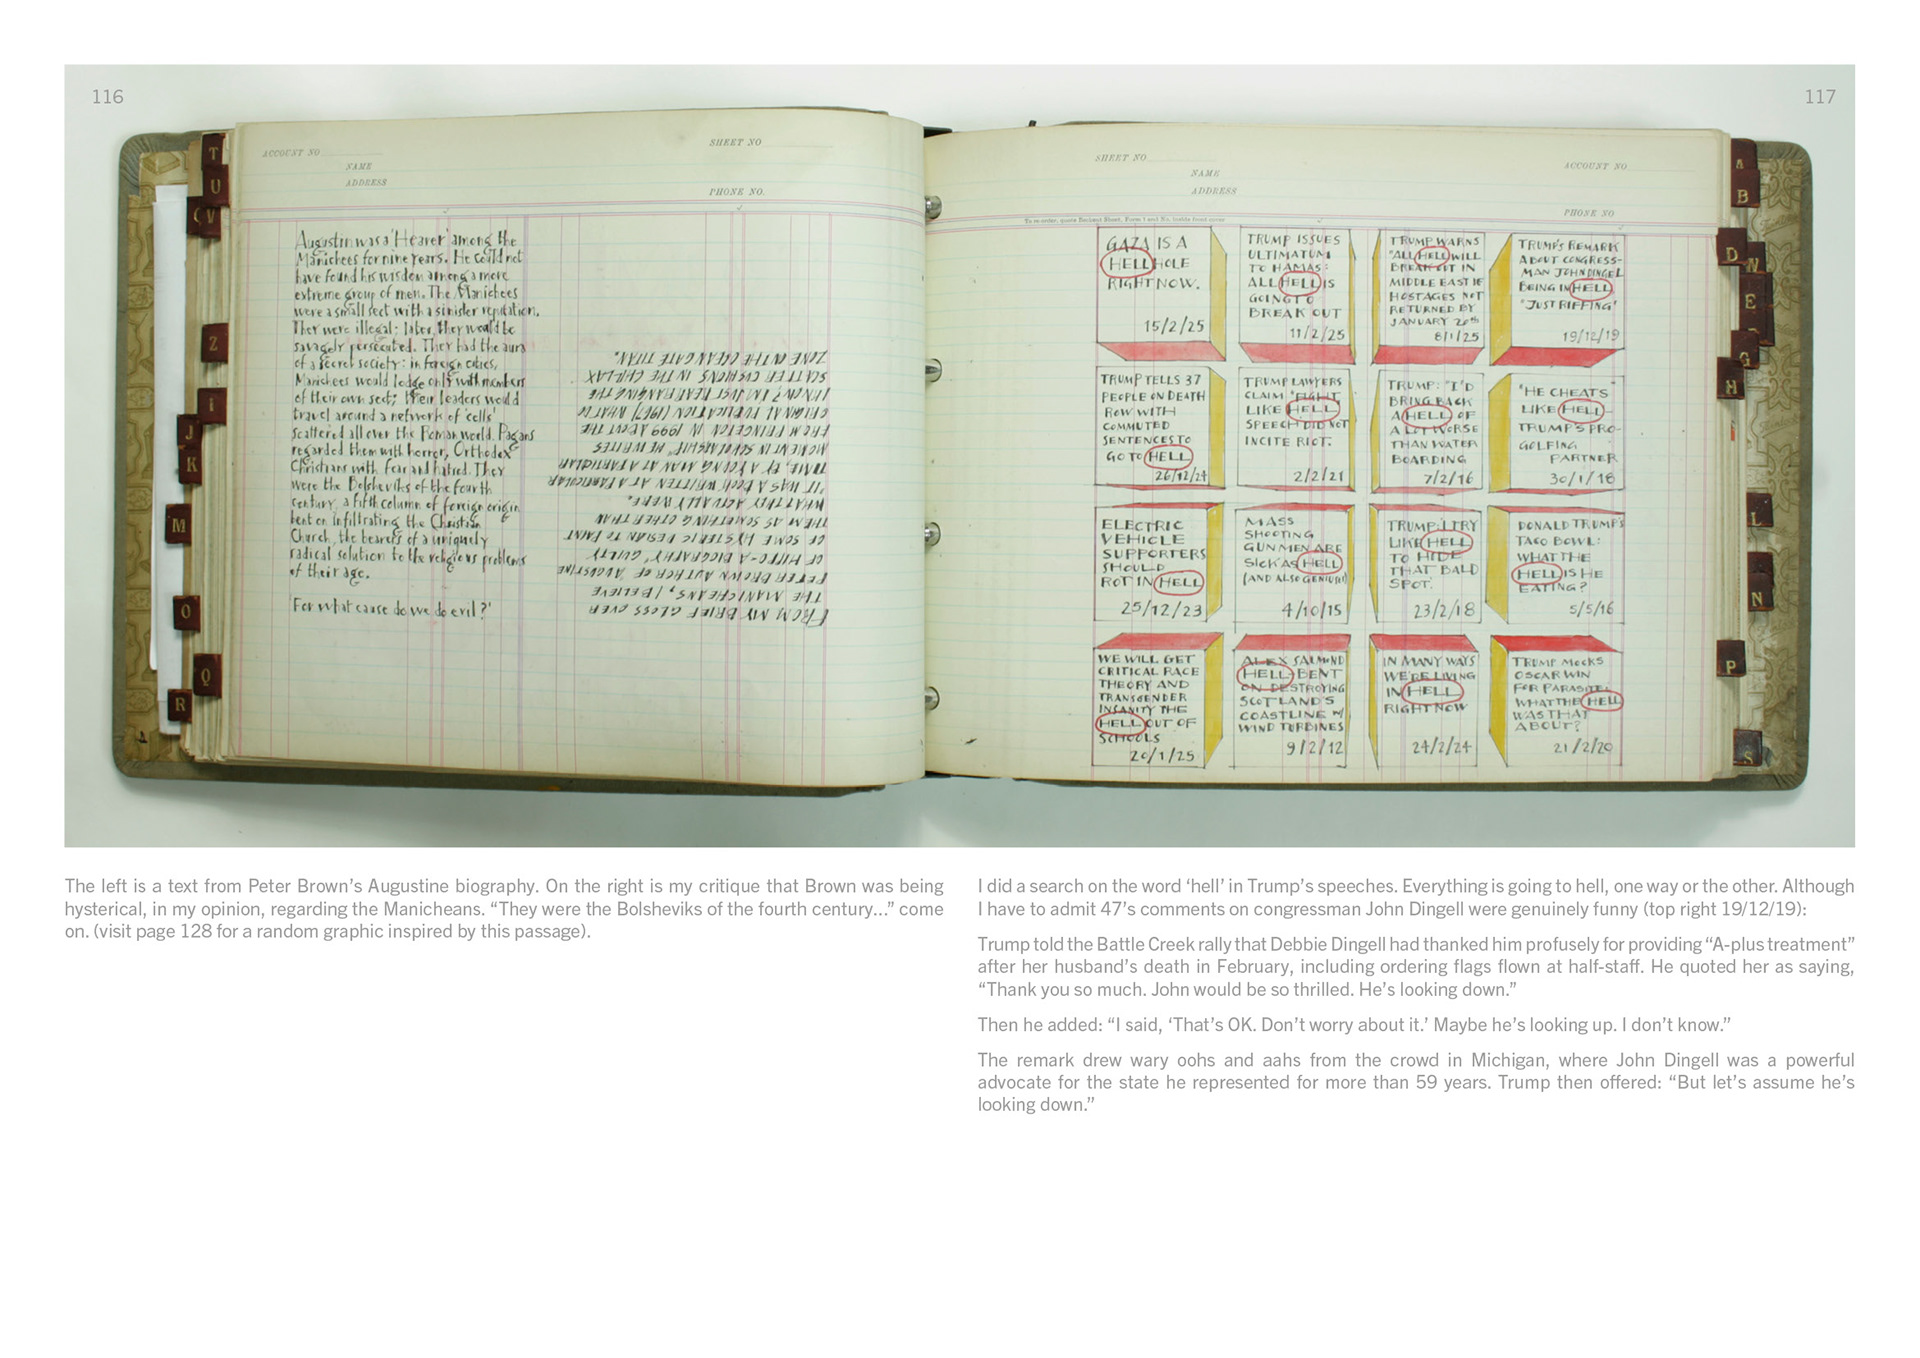 116
117
ACCOUNT NO
SHEET NO
NAME
ADDRESS
PHONE NO.
Augustin was a 'Hearer' among the
Manichees for nine years. He could not
have found his wisdom among a more
extreme group of men. The Manichees
were a small sect with a sinister reputation.
They were illegal; later, they would be
savagely persecuted. They had the aura
of a secret society: in foreign cities,
Manichees would lodge only with members
of their own sect; their leaders would
travel around a network of 'cells'
scattered all over the Roman world. Pagans
regarded them with horror, Orthodox
Christians with fear and hatred. They
were the Bolsheviks of the fourth
century, a fifth column of foreign origin
bent on infiltrating the Christian
Church, the bearers of a uniquely
radical solution to the religious problems
of their age.
'For what cause do we do evil?'
FROM MY BRIEF GLOSS OVER
THE MANICHEANS, I BELIEVE
PETER BROWN AUTHOR OF 'AUGUSTINE
OF HIPPO - A BIOGRAPHY', GUILTY
OF SOME HYSTERIC DESIGN TO PAINT
THEM AS SOMETHING OTHER THAN
WHAT THEY ACTUALLY WERE.
"IT WAS A BOOK WRITTEN AT A PARTICULAR
TIME, BY A YOUNG MAN AT A PARTICULAR
MOMENT IN SCHOLARSHIP" HE WRITES
FROM PRINCETON IN 1999 ABOUT THE
ORIGINAL PUBLICATION (1967) WHAT DO
I KNOW? I'M JUST REARRANGING THE
SCATTER CUSHIONS IN THE CHILLAX
ZONE IN THE OCEANGATE TITAN.
T
U
V
Z
I
J
K
M
O
Q
R
SHEET NO
ACCOUNT NO
NAME
ADDRESS
PHONE NO
To re-order, quote Sheet, Form 1 and No. inside front cover
GAZA IS A
HELL HOLE
RIGHT NOW.
15/2/25
TRUMP ISSUES
ULTIMATUM
TO HAMAS:
ALL HELL IS
GOING TO
BREAK OUT
11/2/25
TRUMP WARNS
"ALL HELL WILL
BREAK OUT IN
MIDDLE EAST IF
HOSTAGES NOT
RETURNED BY
JANUARY 20th
8/1/25
TRUMP'S REMARK
ABOUT CONGRESS-
MAN JOHN DINGEL
BEING IN HELL
"JUST RIFFING"
19/12/19
TRUMP TELLS 37
PEOPLE ON DEATH
ROW WITH
COMMUTED
SENTENCES TO
GO TO HELL
26/12/24
TRUMP LAWYERS
CLAIM "FIGHT
LIKE HELL"
SPEECH DID NOT
INCITE RIOT.
2/2/21
TRUMP: "I'D
BRING BACK
A HELL OF
A LOT WORSE
THAN WATER
BOARDING
7/2/16
"HE CHEATS
LIKE HELL" -
TRUMP'S PRO-
GOLFING
PARTNER
30/1/18
ELECTRIC
VEHICLE
SUPPORTERS
SHOULD
ROT IN HELL
25/12/23
MASS
SHOOTING
GUNMEN ARE
SICK AS HELL
(AND ALSO GENIUS!)
4/10/15
TRUMP: I TRY
LIKE HELL
TO HIDE
THAT BALD
SPOT.
23/2/18
DONALD TRUMP'S
TACO BOWL:
WHAT THE
HELL IS HE
EATING?
5/5/16
WE WILL GET
CRITICAL RACE
THEORY AND
TRANSGENDER
INSANITY THE
HELL OUT OF
SCHOOLS
20/1/25
ALEX SALMOND
HELL-BENT
ON DESTROYING
SCOTLAND'S
COASTLINE W/
WIND TURBINES
9/2/12
IN MANY WAYS
WE'RE LIVING
IN HELL
RIGHT NOW
24/2/24
TRUMP MOCKS
OSCAR WIN
FOR PARASITE
WHAT THE HELL
WAS THAT
ABOUT?
21/2/20
A
B
D
E
G
H
L
N
P
S
The left is a text from Peter Brown’s Augustine biography. On the right is my critique that Brown was being
hysterical, in my opinion, regarding the Manicheans. “They were the Bolsheviks of the fourth century...” come
on. (visit page 128 for a random graphic inspired by this passage).
I did a search on the word ‘hell’ in Trump’s speeches. Everything is going to hell, one way or the other. Although
I have to admit 47’s comments on congressman John Dingell were genuinely funny (top right 19/12/19):
Trump told the Battle Creek rally that Debbie Dingell had thanked him profusely for providing “A-plus treatment”
after her husband’s death in February, including ordering flags flown at half-staff. He quoted her as saying,
“Thank you so much. John would be so thrilled. He’s looking down.”
Then he added: “I said, ‘That’s OK. Don’t worry about it.’ Maybe he’s looking up. I don’t know.”
The remark drew wary oohs and aahs from the crowd in Michigan, where John Dingell was a powerful
advocate for the state he represented for more than 59 years. Trump then offered: “But let’s assume he’s
looking down.”